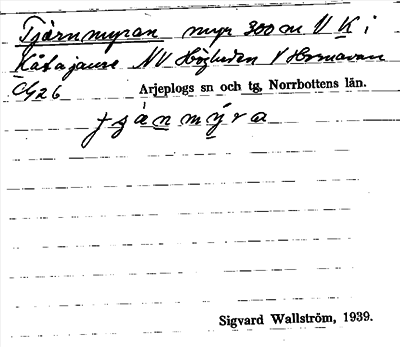 Tjärnmyran myr 300 m V K i
Kåtajaure NV Högheden V Hornavan
C426 Arjeplogs sn och tg, Norrbottens län.
Sigvard Wallström, 1939.